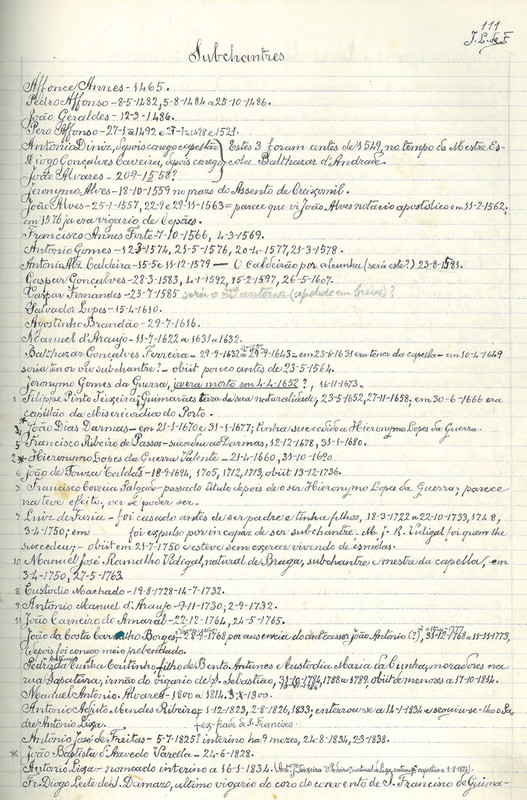 111
J. L. de F.
Subchantres
Affonce Annes - 1465.
Pedro Affonso - 8-5-1482, 5-8-1484 a 25-10-1486.
João Geraldes - 12-3-1486.
Pero Affonso - 27-1-1492 e 27-1-1498 e 1521.
Antonio Diniz, depois conego capellão } Estes 3 foram antes de 1549, no tempo do Mestre Es-
Diogo Gonçalves Caveira, depois conego } cola Balthazar d'Andrade.
João Alvares - 20 9-1558?
Jeronymo Alves - 18-10-1559 no prazo do Assento de Creixomil.
João Alves - 25-1-1557, 22-9 e 29-11-1563 = parece que vi João Alves notario apostolico em 11-2-1562;
em 1576 ja era vigario de Cepães.
Francisco Annes Forte - 7-10-1566, 4-3-1569.
Antonio Gomes - 12-3-1574, 21-5-1576, 20-4-1577, 21-3-1578.
Antonio Alz. Caldeira - 15-5 e 11-12-1579 — O Caldeirão por alcunha (será este?) 23-8-1581.
Gaspar Gonçalves - 28-3-1583, 4-1-1592, 15-2-1597, 26-5-1607.
Gaspar Fernandes - 23-7-1585 será o antonio (apelido em breve)?
Salvador Lopes - 15-4-1610.
Agostinho Brandão - 29-7-1616.
Manuel d'Araujo - 11-7-1622 a 1631 a 1632.
Balthazar Gonçalves Ferreira - 29-9-1632 a 29-9-1643 = em 23-6-1631 era tenor da capella - em 10-4-1649
seria tenor ou subchantre? - obiit pouco antes de 23-5-1564.
Jeronymo Gomes da Guerra, já era morto em 4-4-1652?, 16-11-1673.
1 Filippe Pinto Teixeira, Guimarães terra de sua naturalidade, 23-5-1652, 27-11-1658, em 30-6-1666 era
capellão da Misericordia do Porto.
3 * João Dias Darmas - em 21-1-1670 e 31-1-1677; tinha succedido a Hieronymo Lopes da Guerra.
5 Francisco Ribeiro de Passos - succedeu ao Darmas, 12-12-1678, 31-1-1680.
2 * Hieronymo Lopes da Guerra Valente - 21-4-1660, 31-10-1690
6 João de Souza Caldas - 18-9-1694, 1705, 1712, 1713, obiit 13-12-1736.
Francisco Correia Salgado - passado titulo depois de o ser Hieronymo Lopes da Guerra; parece
não teve effeito, ver se poder ser.
7 Luiz de Faria - foi casado antes de ser padre e tinha filhos, 18-3-1722 a 22-10-1733, 1748,
3-4-1750; em foi expulso por incapaz de ser subchantre. M. J. R. Vidigal foi quem lhe
succedeu; - obiit em 21-7-1750 e esteve sem exercer vivendo de esmolas.
10 Manuel José Ramalho Vidigal, natural de Braga, subchantre e mestre da capella, em
3-4-1750, 27-5-1763.
8 Custodio Machado - 19-8-1728 - 14-7-1732.
9 Antonio Manuel d'Araujo - 9-11-1730; 2-9-1732.
11 João Carneiro do Amaral - 22-12-1764, 24-5-1765.
João da Costa Carvalho Borges - 28-9-1768 por ausencia do antecessor João Antonio (?), 31-12-1768 a 11-11-1773,
(depois foi conego meio prebendado.
Pedro da Cunha Coutinho filho de Bento Antunes e Custodia Maria da Cunha, moradores na
rua Sapateira; irmão do vigario de S. Sebastião, 31-10-1784, 1788 a 1789. obiit de menores a 17-10-1814.
Manuel Antonio Alvares - 1800 a 1814, 3-X-1800.
Antonio José Mendes Ribeiro - 1-12-1823, 2-8-1826, 1833; enterrou-se a 14-1-1834 e seguiu-se-lhe o Pa-
dre Antonio Lixa. + ex-frade de S. Francisco
Antonio José de Freitas - 5-7-1825? interino ha 9 mezes, 24-8-1834, 23-1838.
* João Baptista d'Azevedo Varella - 24-6-1828.
Antonio Lixa - nomeado interino a 16-1-1834.
Fr. Diogo Leite de S. Damazo, ultimo vigario do coro do convento de S. Francisco de Guima-